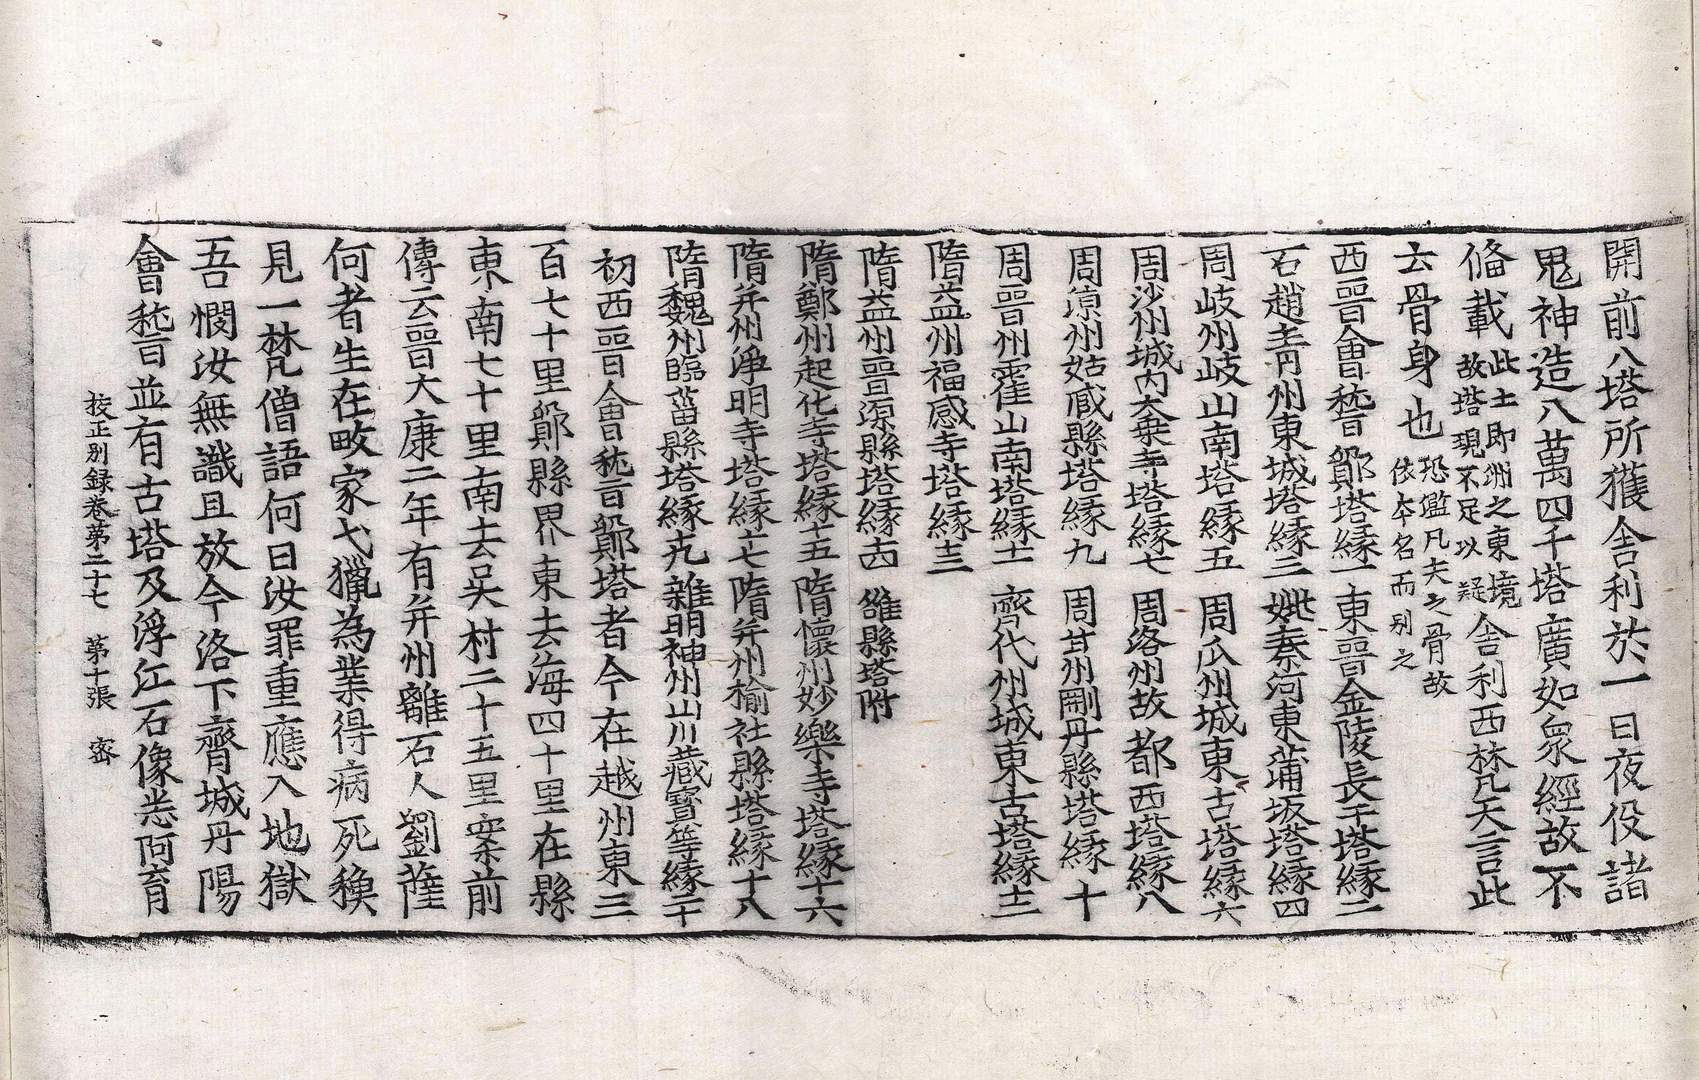 開前八塔所獲舍利於一日夜役諸
鬼神造八萬四千塔廣如衆經故不
俻載此土即洲之東境故塔現不足以疑舍利西梵天言此
云骨身也恐濫凡夫之骨故依本名而别之
西晉會稽鄮塔緣一東晉金陵長干塔緣二
石趙青州東城塔緣三姚秦河東蒲坂塔緣四
周岐州岐山南塔緣五 周瓜州城東古塔緣六
周沙州城內大乗寺塔緣七 周洛州故都西塔緣八
周涼州姑臧縣塔緣九 周甘州刪丹縣塔緣十
周晉州霍山南塔緣十一 齊代州城東古塔緣十二
隋益州福感寺塔緣十三
隋益州晉源縣塔緣十四 雒縣塔附
隋鄭州起化寺塔緣十五 隋懷州妙樂寺塔緣十六
隋并州淨明寺塔緣十七 隋并州榆社縣塔緣十八
隋魏州臨菑縣塔緣十九 雜明神州山川藏寶等緣二十
初西晉會稽鄮塔者今在越州東三
百七十里鄮縣界東去海四十里在縣
東南七十里南去吳村二十五里案前
傳云晉大康二年有并州離石人劉薩
何者生在畋家弋獵為業得病死穌
見一梵僧語何曰汝罪重應入地獄
吾憫汝無識且放今洛下齊城丹陽
會稽並有古塔及浮江石像悉阿育
挍正別録卷第二十七 第十張 密